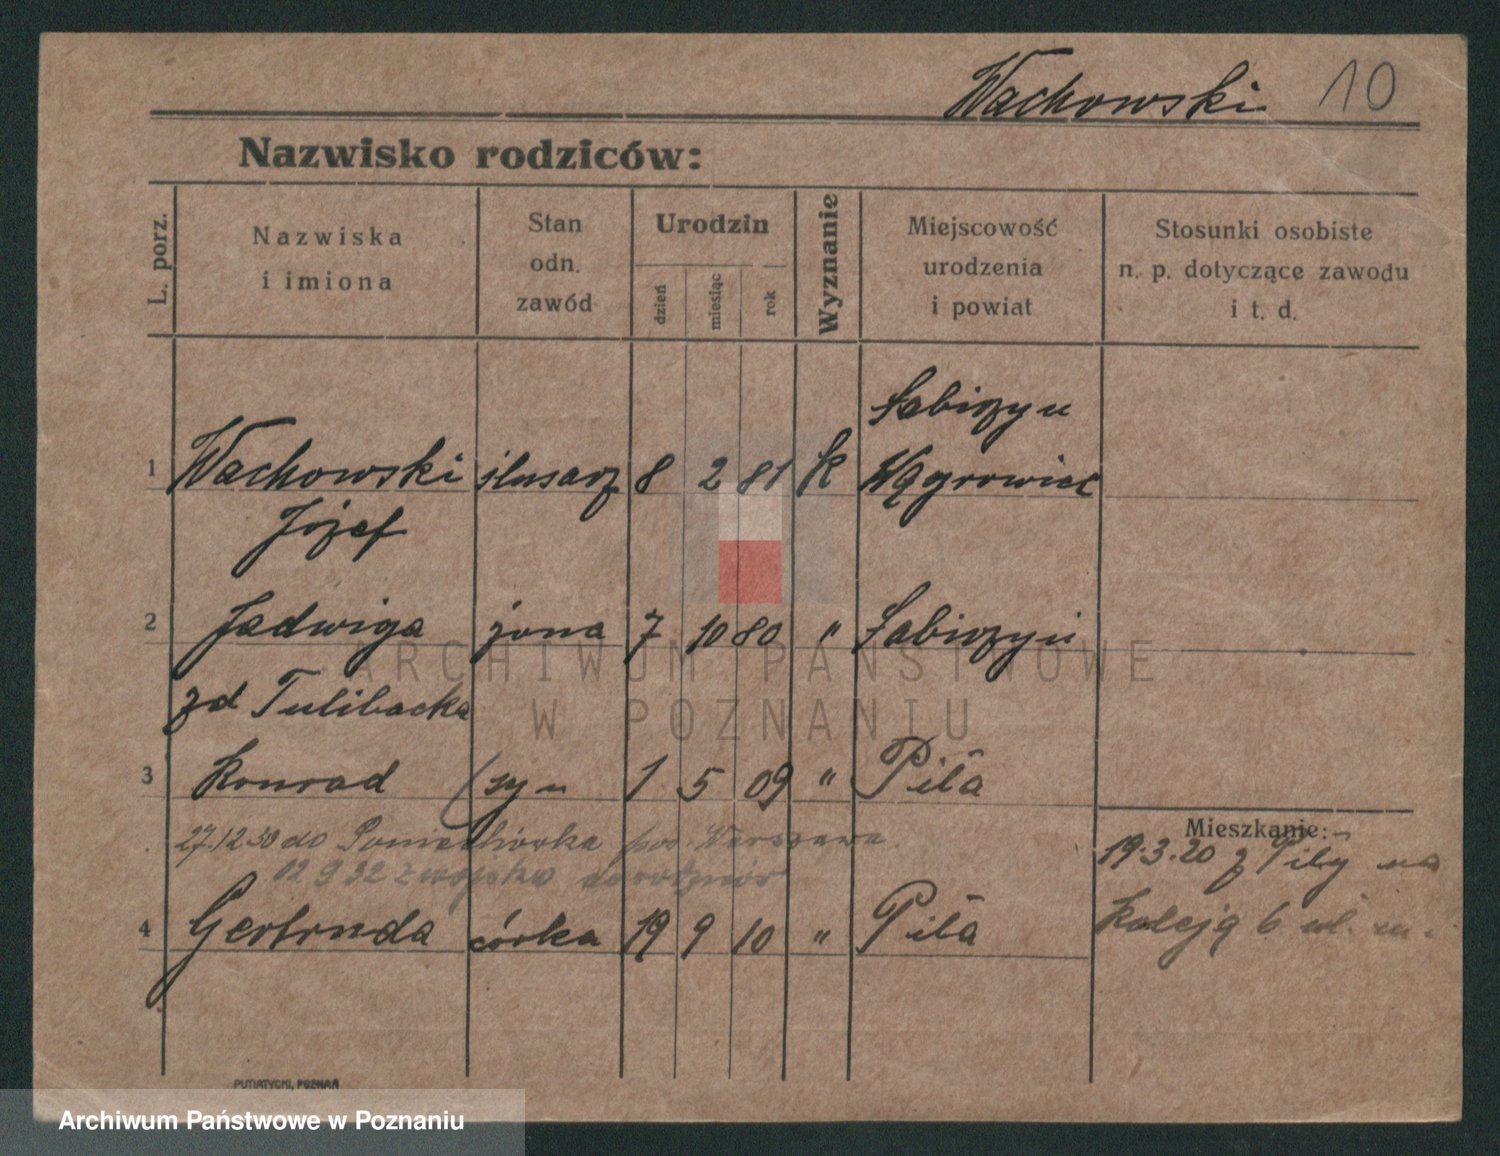 Wachowski 10
Nazwisko rodziców:
L. porz.
Nazwiska
i imiona
Stan
odn.
zawód
Urodzin
dzień
miesiąc
rok
Wyznanie
Miejscowość
urodzenia
i powiat
Stosunki osobiste
n. p. dotyczące zawodu
i t. d.
Łabiszyn
1 Wachowski ślusarz 8 2 81 k Wągrowiec
Józef
2 Jadwiga żona 7 10 80 " Łabiszyn
zd Tulibacka
3 Konrad syn 1 5 09 " Piła
27.12.30 do Pomiechówka pow. Warszawa
12 9 32 z wojska do rodziców
4 Gertruda córka 19 9 10 " Piła
Mieszkanie:
19.3.20 z Piły na
Koleją 6 wł. m.
PUTIATYCKI, POZNAŃ
ARCHIWUM PAŃSTWOWE
W POZNANIU
Archiwum Państwowe w Poznaniu